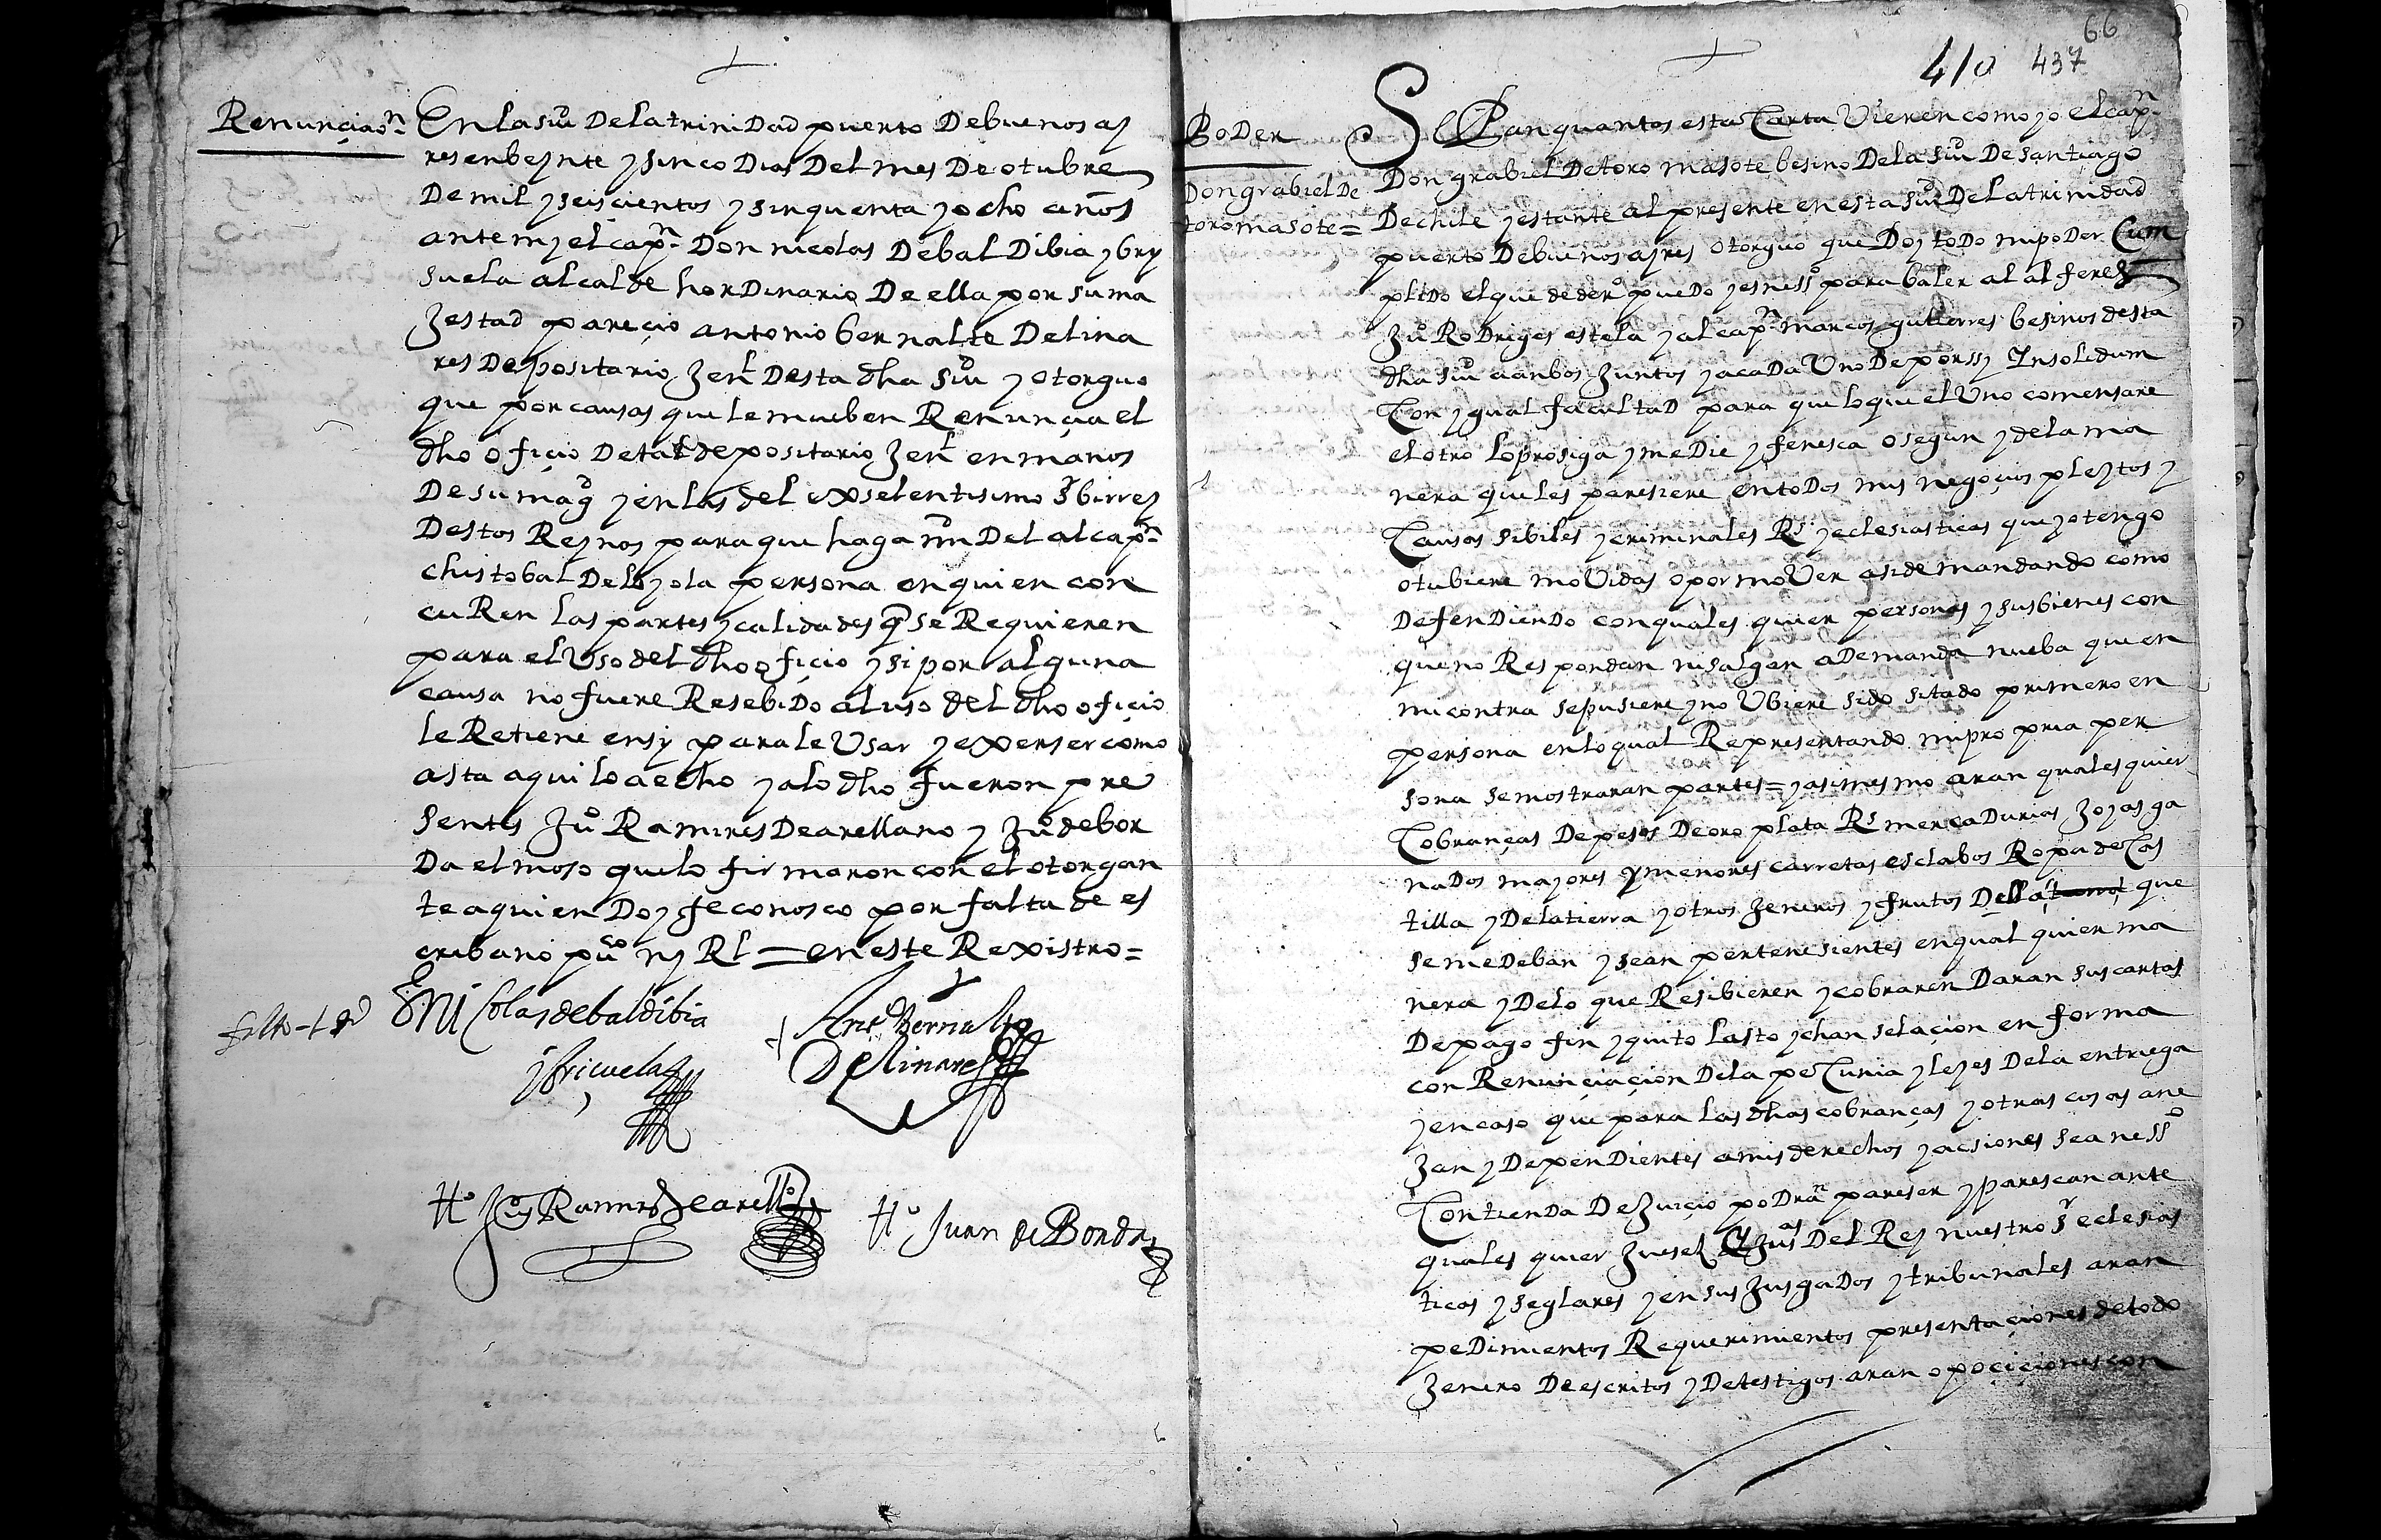 Renunçiaon
En la siud De la triniDad puerto De buenos ay
res en beynte y sinco Dias Del mes De otubre
De mil y seisçientos y sinquenta y ocho años
ante my el capn Don nicolas De balDibia y bry
suela alcalde horDinario De ella por su ma
Jestad pareçio antonio bernalte De lina
res Depositario Jenl Desta dha siud y otorguo
que por causas que le mueben Renunçia el
dho ofiçio De tal depositario Jenl en manos
De su magd y en las del exselentisimo sr birrey
Destos Reynos para que haga mrd Del al capn
christobal De loyola persona en quien con
cuRen las partes y calidades q se Requieren
para el Uso del dho ofiçio y si por alguna
causa no fuere ResebiDo al uso del dho ofiçio
le Retiene en sy para le Usar y exerser como
asta aqui lo a echo y a lo dho fueron pre
sentes Juo Ramires De arellano y Juo de bor
Da el moso que lo firmaron con el otorgan
te a quien Doy fe conosco por falta de es
cribano puco ny Rl = en este Rexistro =
Don Nicolas de baldibia
y briçuela
Anto Bernalte
De linares
to Juo Ramires de arello
to Juan de Borda
66
410 437
PoDer
Don grabiel De
toro masote =
Sepan quantos esta Carta Vieren como yo el capn
Don grabiel De toro masote besino De la siud De santiago
De chile y estante al presente en esta siud De la trinidad
puerto De buenos ayres otorguo que Doy toDo mi poDer Cum
pliDo el que de dero pueDo y es nesso para baler al alferez
Juo RoDriges estela y al capn marcos gutierres besinos desta
dha siud a anbos Juntos y a caDa Uno De por ssy Ynsolidum
Con ygual facultaD para que lo que el Uno comensare
el otro lo prosiga y meDie y fenesca o segun y de la ma
nera que les paresiere en toDos mis negoçios pleytos y
Causas sibiles y criminales Rs y eclesiasticas que yo tengo
o tubiere moVidas o por moVer asi demandando como
DefenDienDo con quales quier personas y sus bienes con
que no Respondan ni salgan a Demanda nueba que en
mi contra se pusiere y no Ubiere sido sitado primero en
persona en lo qual Representando mi propria per
sona se mostraran partes = y asimesmo aran quales quier
Cobranças De pesos De oro plata Rs mercaDurias Joyas ga
naDos mayores y menores carretas esclabos Ropa de Cas
tilla y De la tierra y otros Jeneros y frutos Della que
se me Deban y sean pertenesientes en qual quier ma
nera y De lo que Resibieren y cobraren Daran sus cartas
De pago fin y quito lasto y chanselaçion en forma
con Renunçiaçion De la peCunia y leyes De la entrega
y en caso que para las dhas cobranças y otras cosas ane
Jas y DepenDientes a mis derechos y acsiones sea nesso
ContienDa De Juiçio poDran pareser y parescan ante
quales quier Jueses y Jusas Del Rey nuestro sr eclesias
ticos y seglares y en sus JusgaDos y tribunales aran
peDimientos Requerimientos presentaçiones de todo
Jenero De escritos y De testigos aran opoçiçiones con